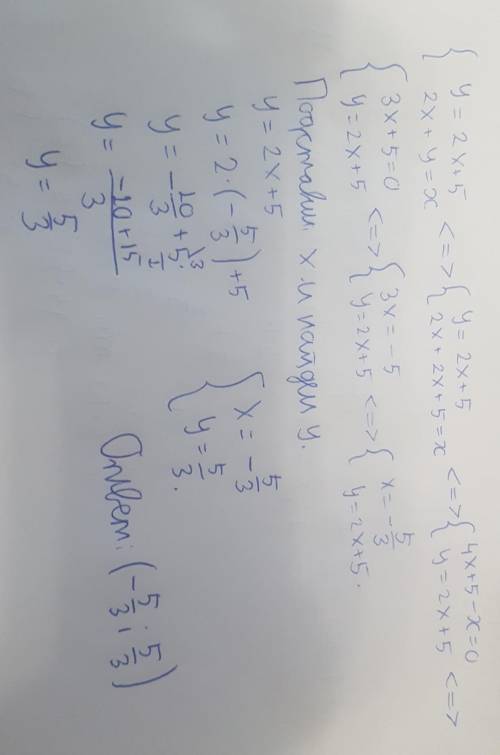 { y = 2x+5 <=> { y = 2x+5 <=> { 4x+5-x=0 <=>
{ 2x+y=x { 2x+2x+5=x { y=2x+5
{ 3x+5=0 <=> { 3x=-5 <=> { x=-5/3
{ y=2x+5 { y=2x+5 { y=2x+5.
Подставим x и найдем y.
y = 2x+5
y = 2·(-5/3)+5
y = -10/3 + 5/1 \3
y = -10+15/3
y = 5/3
{ x = -5/3
{ y = 5/3.
Ответ: (-5/3; 5/3)